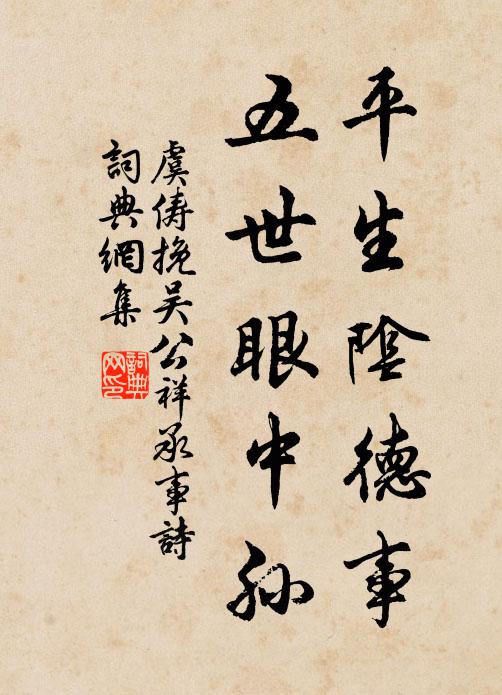 平生陰德事
五世眼中孫
虞儔挽吴公祥承事詩
詞典網集
詞典網印